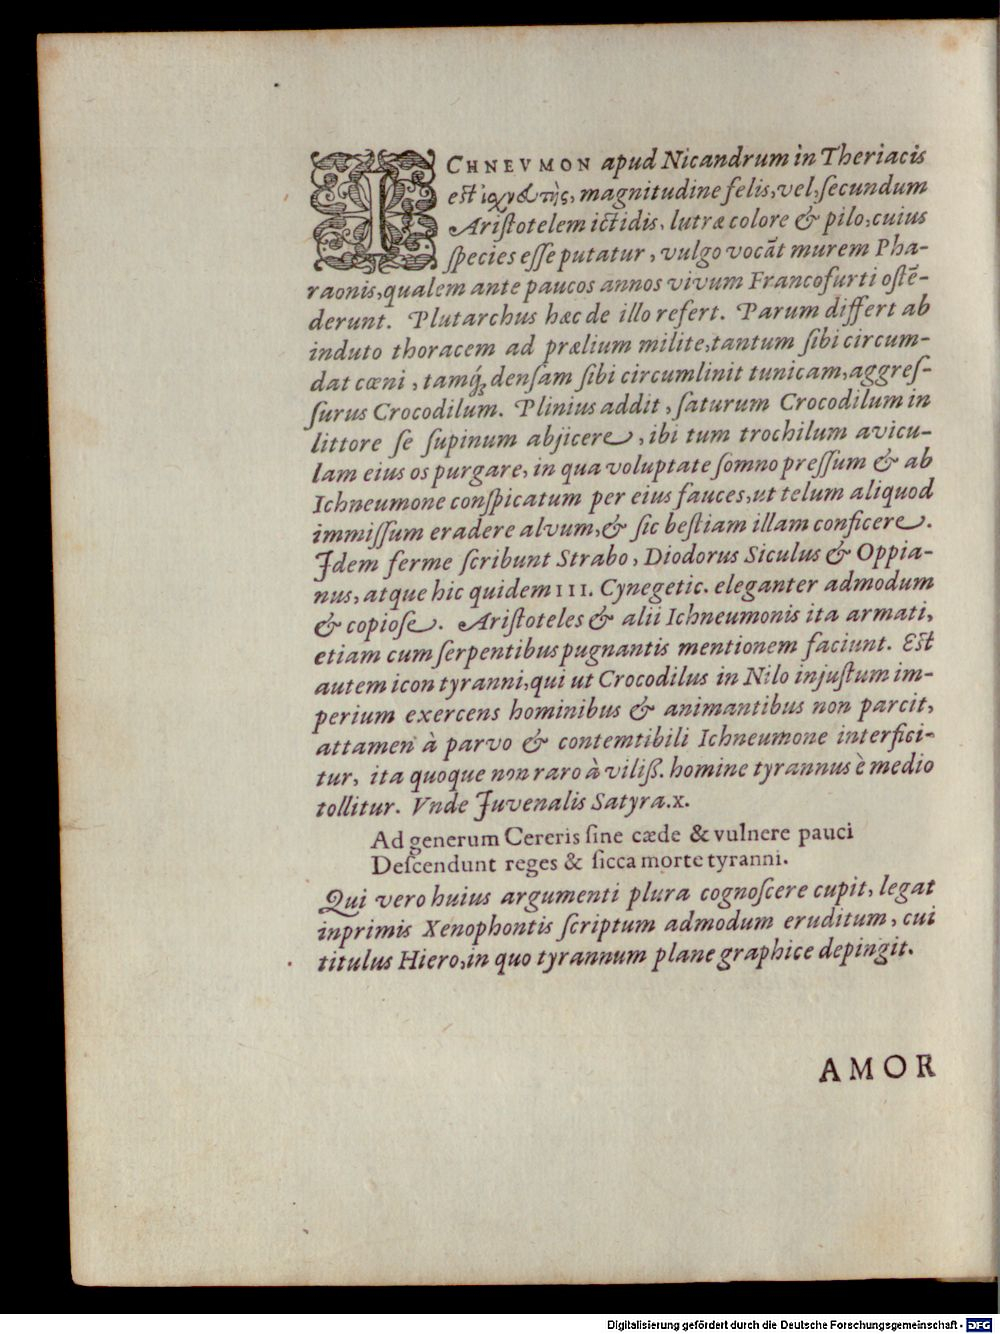 ICHNEVMON apud Nicandrum in Theriacis
est ἰχνευτὴς, magnitudine felis, vel, ſecundum
Ariſtotelem ictidis, lutræ colore & pilo, cuius
ſpecies eſſe putatur, vulgo vocāt murem Pha-
raonis, qualem ante paucos annos vivum Francofurti oſtē-
derunt. Plutarchus hæc de illo refert. Parum differt ab
induto thoracem ad prælium milite, tantum ſibi circum-
dat cœni, tamq́; denſam ſibi circumlinit tunicam, aggreſ-
ſurus Crocodilum. Plinius addit, ſaturum Crocodilum in
littore ſe ſupinum abjicere, ibi tum trochilum avicu-
lam eius os purgare, in qua voluptate ſomno preſſum & ab
Ichneumone conſpicatum per eius fauces, ut telum aliquod
immiſſum eradere alvum, & ſic beſtiam illam conficere.
Idem ferme ſcribunt Strabo, Diodorus Siculus & Oppia-
nus, atque hic quidem III. Cynegetic. eleganter admodum
& copioſe. Ariſtoteles & alii Ichneumonis ita armati,
etiam cum ſerpentibus pugnantis mentionem faciunt. Est
autem icon tyranni, qui ut Crocodilus in Nilo injuſtum im-
perium exercens hominibus & animantibus non parcit,
attamen à parvo & contemtibili Ichneumone interfici-
tur, ita quoque non raro à viliß. homine tyrannus è medio
tollitur. Vnde Juvenalis Satyra.x.
Ad generum Cereris ſine cæde & vulnere pauci
Deſcendunt reges & ſicca morte tyranni.
Qui vero huius argumenti plura cognoſcere cupit, legat
inprimis Xenophontis ſcriptum admodum eruditum, cui
titulus Hiero, in quo tyrannum plane graphice depingit.
AMOR
Digitalisierung gefördert durch die Deutsche Forschungsgemeinschaft - DFG